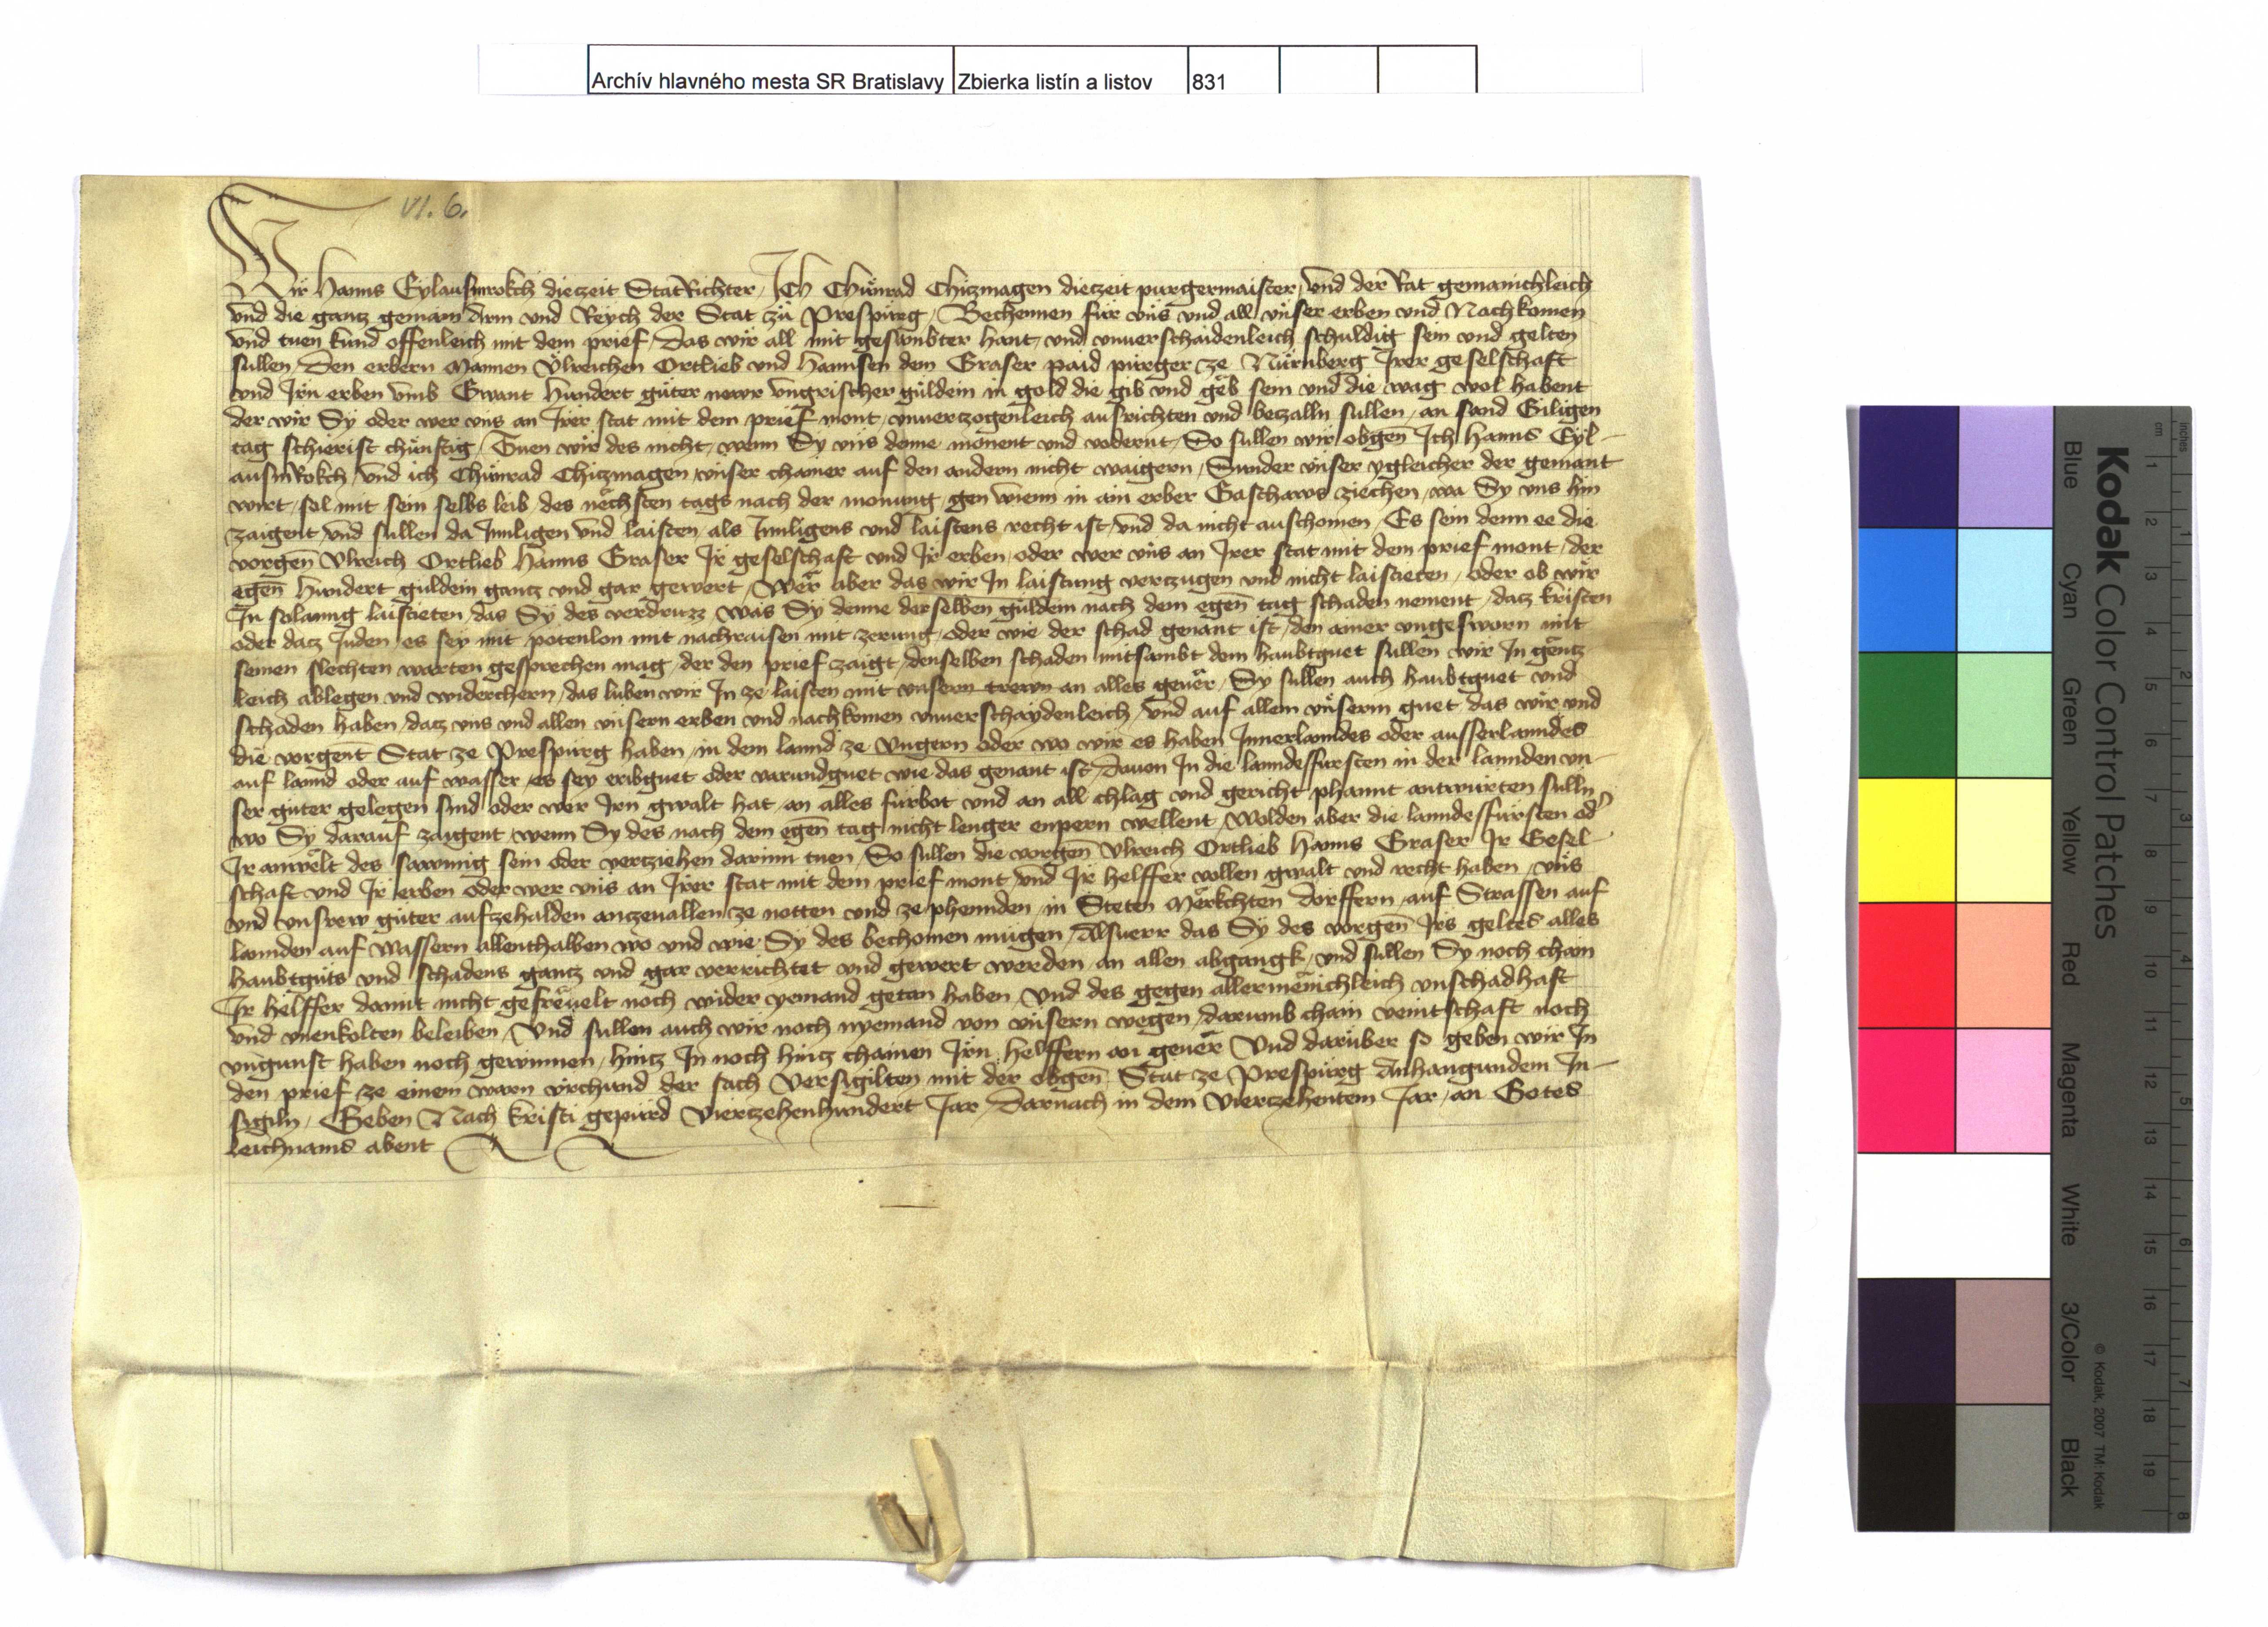 Archív hlavného mesta SR Bratislavy Zbierka listín a listov 831
VI. 6.
Wir Hanns Eylausmrokch diezeit StatRichter, Ich Chünrad Chiczmagen diezeit purgermaister, und der Rat gemainchleich
und die gantz gemain Arm und Reych der Stat zů Prespurg, Bechennen für uns und all unser erben und Nachkomen
und tuen kund offenleich mit dem prief, Das wir all mit gesambter hant und unuerschaidenleich schuldig sein und gelten
sullen, Den erbern Mannen Ulreichen Ortlieb und Hannsen dem Graser paid purger ze Nürnberg Irer geselschaft
und Irn erben umb Gwant Hundert guter newr ungrischer guldein in gold die gib und geb sein und die wag wol habent
der wir Sy oder wer uns an Irer stat mit dem prief mont, unuerczogenleich ausrichten und beczalln sullen, an sand Giligen
tag schierist chünftig, Tuen wir des nicht, wenn Sy uns denne monent und vodernt, So sullen wir obgen̄ Ich Hanns Eyl-
ausmRokch, und ich Chünrad Chiczmagen, unser chainer auf den andern nicht waigern, Sunder unser ygleicher der gemant
wirt, sol mit sein selbs leib des nechsten tags nach der monung, gen wienn in ain erber Gasthaws ziechen, wa Sy uns hin
zaigent, und sullen da Innligen und laisten, als Innligens und laistens recht ist, und da nicht auschomen, Es sein denn ee die
vorgen̄ Ulreich Ortlieb Hanns Graser Ir geselschaft und Ir erben, oder wer uns an Irer stat mit dem prief mont, der
egen̄ Hundert guldein gantz und gar gewert, Wer aber das wir In laistung verczugen und nicht laistieten, oder ob wir
In solanng laistieten, das Sy des verdruzz, was Sy denne derselben guldein nach dem egen̄ tag schaden nement, dacz kristen
oder dacz Juden, es sey mit potenlon mit nachraisen mit zerung, oder wie der schad genant ist, den ainer ungesworn mit
seinen slechten warten gesprechen mag, der den prief zaigt, denselben schaden mitsambt dem haubtguet sullen wir In gentz
leich ablegen und widerchern, das luben wir In ze laisten mit unsern trewn an alles geuer, Sy sullen auch haubtguet und
schaden haben, dacz uns und allen unsern erben und nachkomen unuerschaydenleich, und auf allem unserm guet, das wir und
die vorgent Stat ze Prespurg haben, in dem lannd ze Ungern oder wo wir es haben Innerlanndes oder ausserlanndes
auf lannd oder auf wasser, es sey eribguet oder varundguet wie das genant ist, Dauon In die lanndesfürsten in der lannden un-
ser guter gelegen sind oder wer Irn gwalt hat, an alles fürbot und an all chlag und gericht phannt antwurten sulln
wo Sy darauf zaigent, wenn Sy des nach dem egen̄ tag nicht lenger enpern wellent, Wolden aber die lanndesfürsten od
Ir anwelt des sawmig sein oder verziehen darinn tuen, So sullen die vorgen̄ Ulreich Ortlieb Hanns Graser Ir Gesel-
schaft und Ir erben oder wer uns an Irer stat mit dem prief mont, und Ir helffer vollen gwalt und recht haben, uns
und unsrew guter aufzehalden anzeuallen ze notten und ze phennden, in Steten Merkchten dorffern, auf Strassen auf
lannden auf wassern allenthalben wo und wie Sy des bechomen mugen, Alsuerr das Sy des vorgen̄ Irs geltes alles
haubtguts und schadens gantz und gar verrichtet und gewert werden, an allen abgangk, und sullen Sy noch chain
Ir helffer damit nicht gefreuelt noch wider yemand getan haben, und des gegen allermenichleich unschadhaft
und unenkolten beleiben, Und sullen auch wir noch nyemand von unsern wegen, darumb chain veintschaft noch
ungunst haben noch gewinnen, hincz In noch hincz chainen Irn helffern an geuer, Und darüber so geben wir In
den prief ze einem warn urchund der sach Versigilten mit der obgen̄ Stat ze Prespurg Anhangundem In-
sigiln, Geben Nach kristi gepurd Vierczehenhundert Jar, Darnach in dem Vierczehentem Jar, an Gotes
leichnams abent
Kodak Color Control Patches
Blue Cyan Green Yellow Red Magenta White 3/Color Black
© Kodak, 2007 TM: Kodak
inches 1 2 3 4 5 6 7 8
cm 1 2 3 4 5 6 7 8 9 10 11 12 13 14 15 16 17 18 19